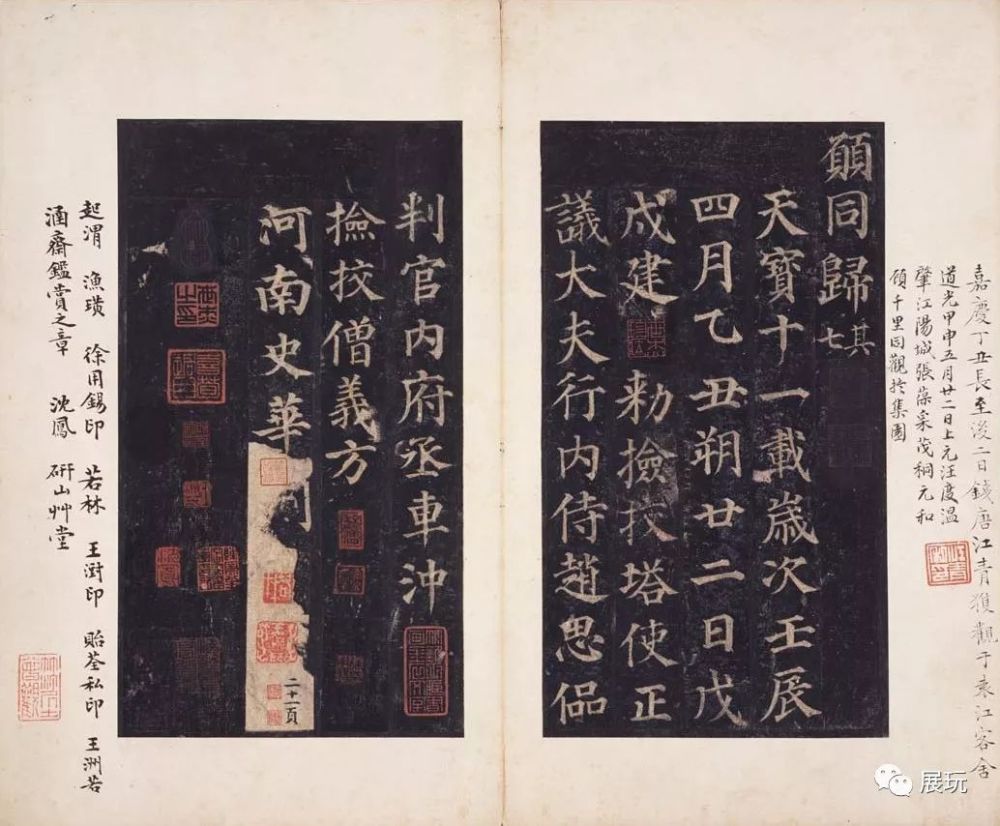 嘉慶丁丑長至後二日錢唐江青獲觀于袁江客舍
道光甲申五月廿二日上元汪度溫
肇江陽城張葆采茂桐元和
顧千里同觀於集園
願同歸其七
天寶十一載歲次壬辰
四月乙丑朔廿二日戊
戌建 勑檢挍塔使正
議大夫行内侍趙思偘
判官内府丞車沖
撿挍僧義方
河南史華刻
二十一頁
起渭 漁璜 徐用錫印 若林 王澍印 貽荃私印 王洲若
涵齋鑑賞之章 沈鳳 研山艸堂
展玩